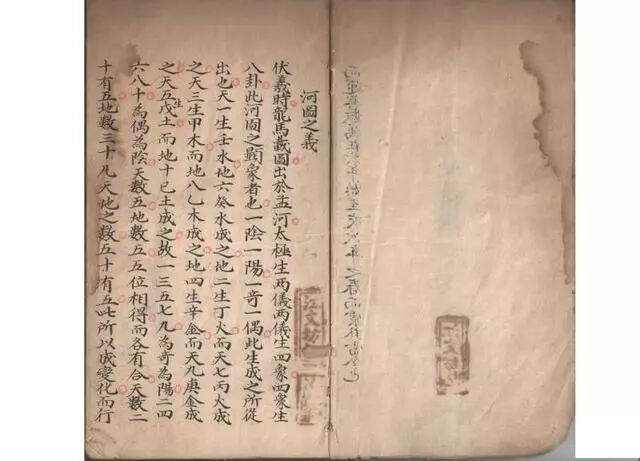 河圖之義
伏義時龍馬載圖出於孟河太極生兩儀兩儀生四象四象生
八卦此河圖之顯象者也一陰一陽一奇一偶此生成之所從
出也天一生壬水地六癸水成之地二生丁火而天七丙火成
之天三生甲木而地八乙木成之地四生辛金而天九庚金成
之天五生戊土而地十己土成之故一三五七九為奇為陽二四
六八十為偶為陰天數五地數五五位相得而各有合天數二
十有五地數三十凡天地之數五十有五此所以成變化而行